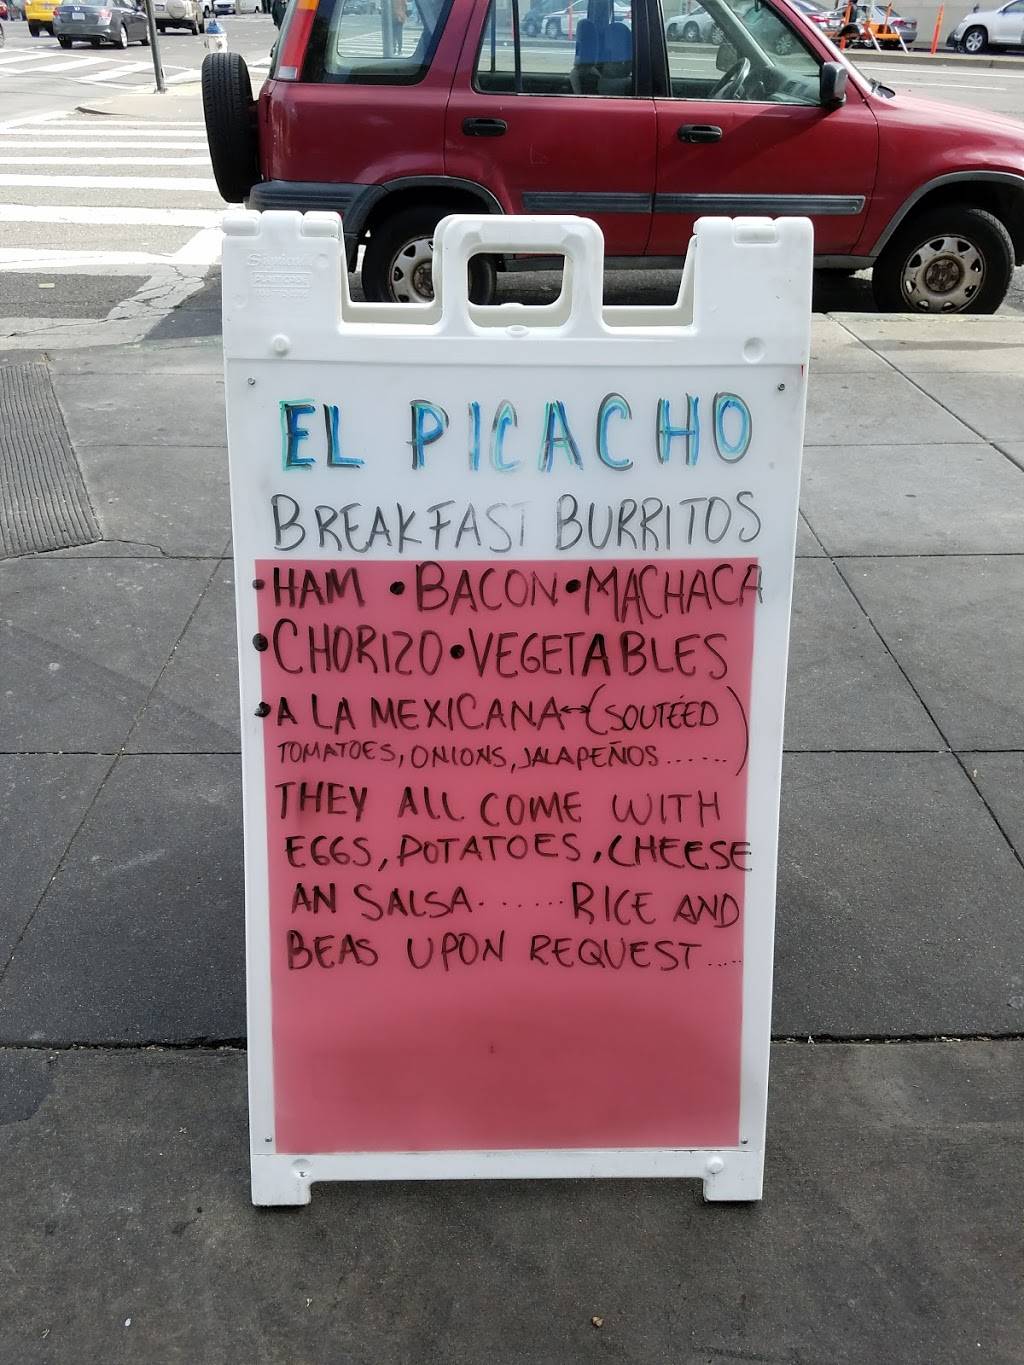 Signicade
PLASTICADE
EL PICACHO
BREAKFAST BURRITOS
•HAM •BACON•MACHACA
•CHORIZO•VEGETABLES
•A LA MEXICANA↔(SOUTÉED
TOMATOES, ONIONS, JALAPEÑOS......)
THEY ALL COME WITH
EGGS, POTATOES, CHEESE
AN SALSA.......RICE AND
BEAS UPON REQUEST.....